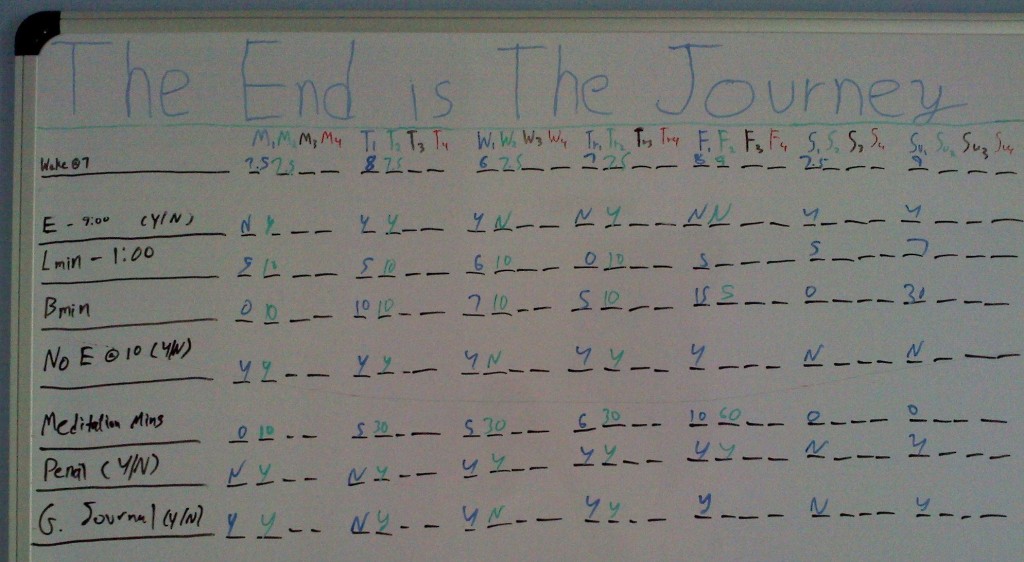 The End is The Journey
M1 M2 M3 M4 T1 T2 T3 T4 W1 W2 W3 W4 TH1 TH2 TH3 TH4 F1 F2 F3 F4 S1 S2 S3 S4 SU1 SU2 SU3 SU4
Wake @ 7 7.5 7.5 8 7.5 6 7.5 7 7.5 8 8 7.5 9
E - 9:00 (Y/N) N Y Y Y Y N N Y N N Y Y
Lmin - 1:00 5 10 5 10 6 10 0 10 5 5 7
Bmin 0 10 10 10 7 10 5 10 15 5 0 30
No E @ 10 (Y/N) Y Y Y Y Y N Y Y Y N N
Meditation Mins 0 10 5 30 5 30 6 30 10 60 0 0
(Y/N) N Y N Y Y Y Y Y Y Y N Y
G. Journal (Y/N) Y Y N Y Y N Y Y Y N Y